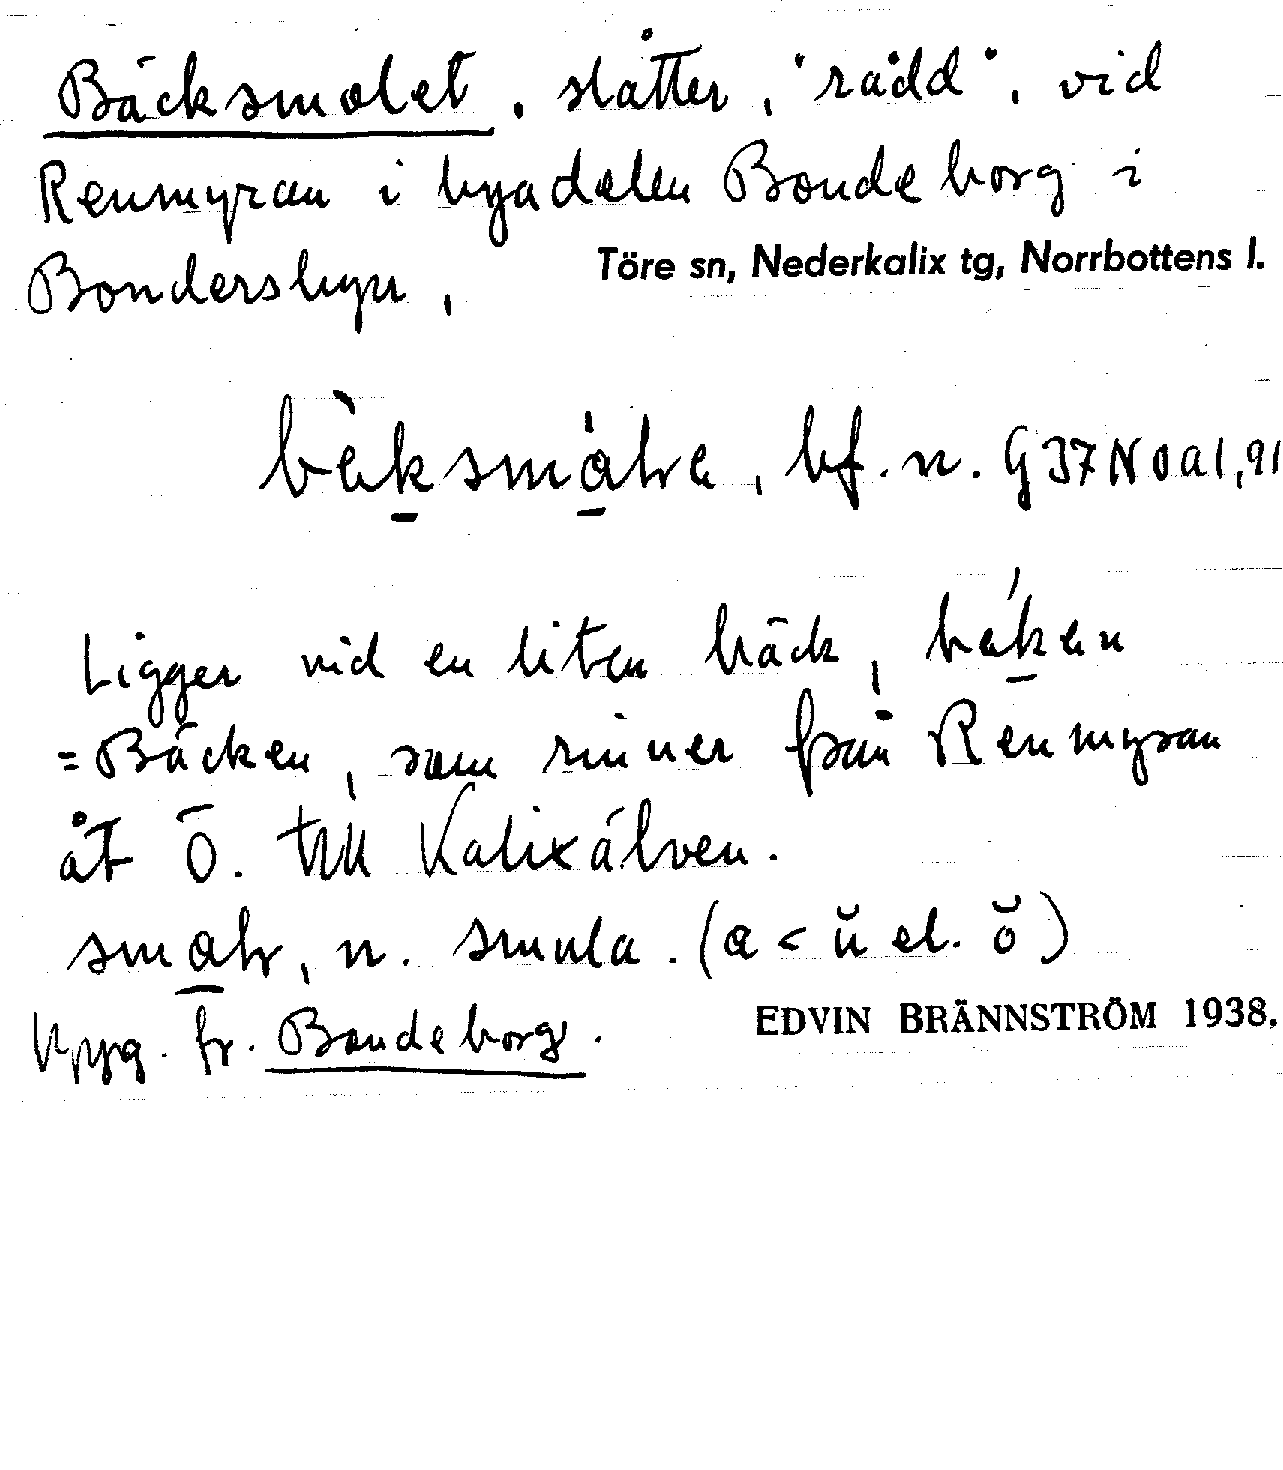 Bäcksmolet, slåtter, "rådd", vid
Renmyran i byadelen Bondeborg i
Bondersbyn, Töre sn, Nederkalix tg, Norrbottens l.
bf. n. G37N0a1,91
Ligger vid en liten bäck,
= Bäcken, som rinner från Renmyran
åt Ö. till Kalixälven.
n. smula. (a < ŭ el. ŏ)
Uppg. fr. Bondeborg. EDVIN BRÄNNSTRÖM 1938.